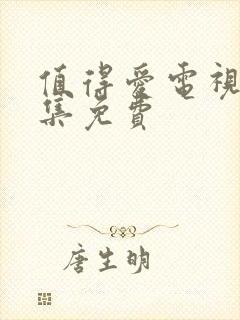 值得愛電視
集免費
唐生明